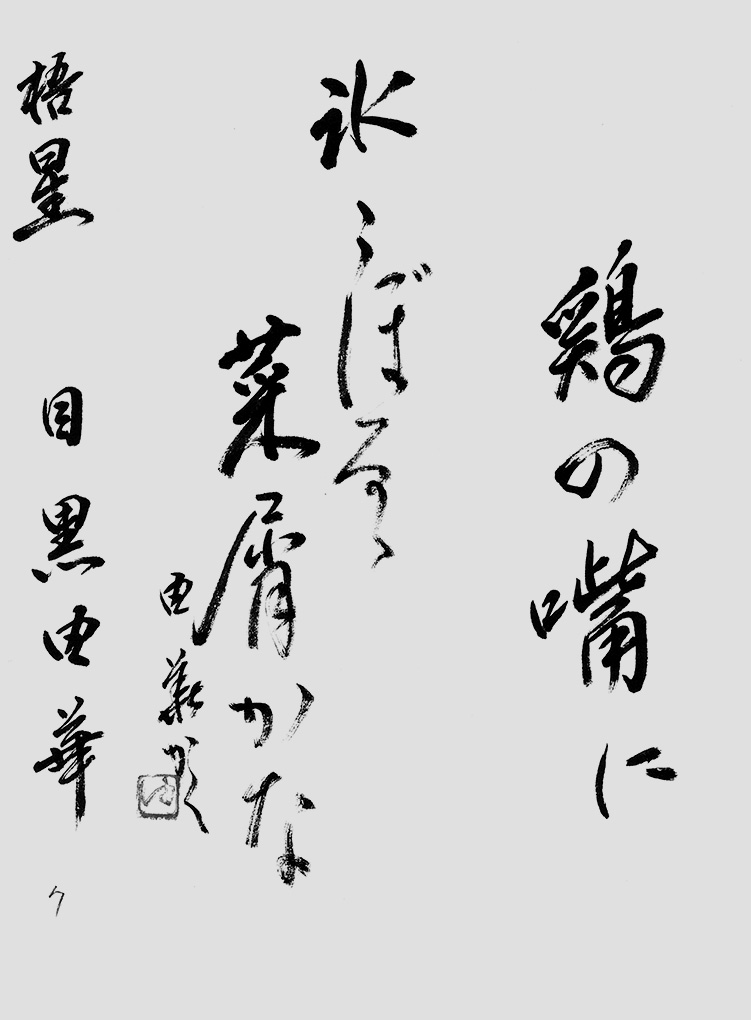 鶏の嘴に
氷こぼるゝ
菜屑かな
由華かく
梧星 目黒由華 ク